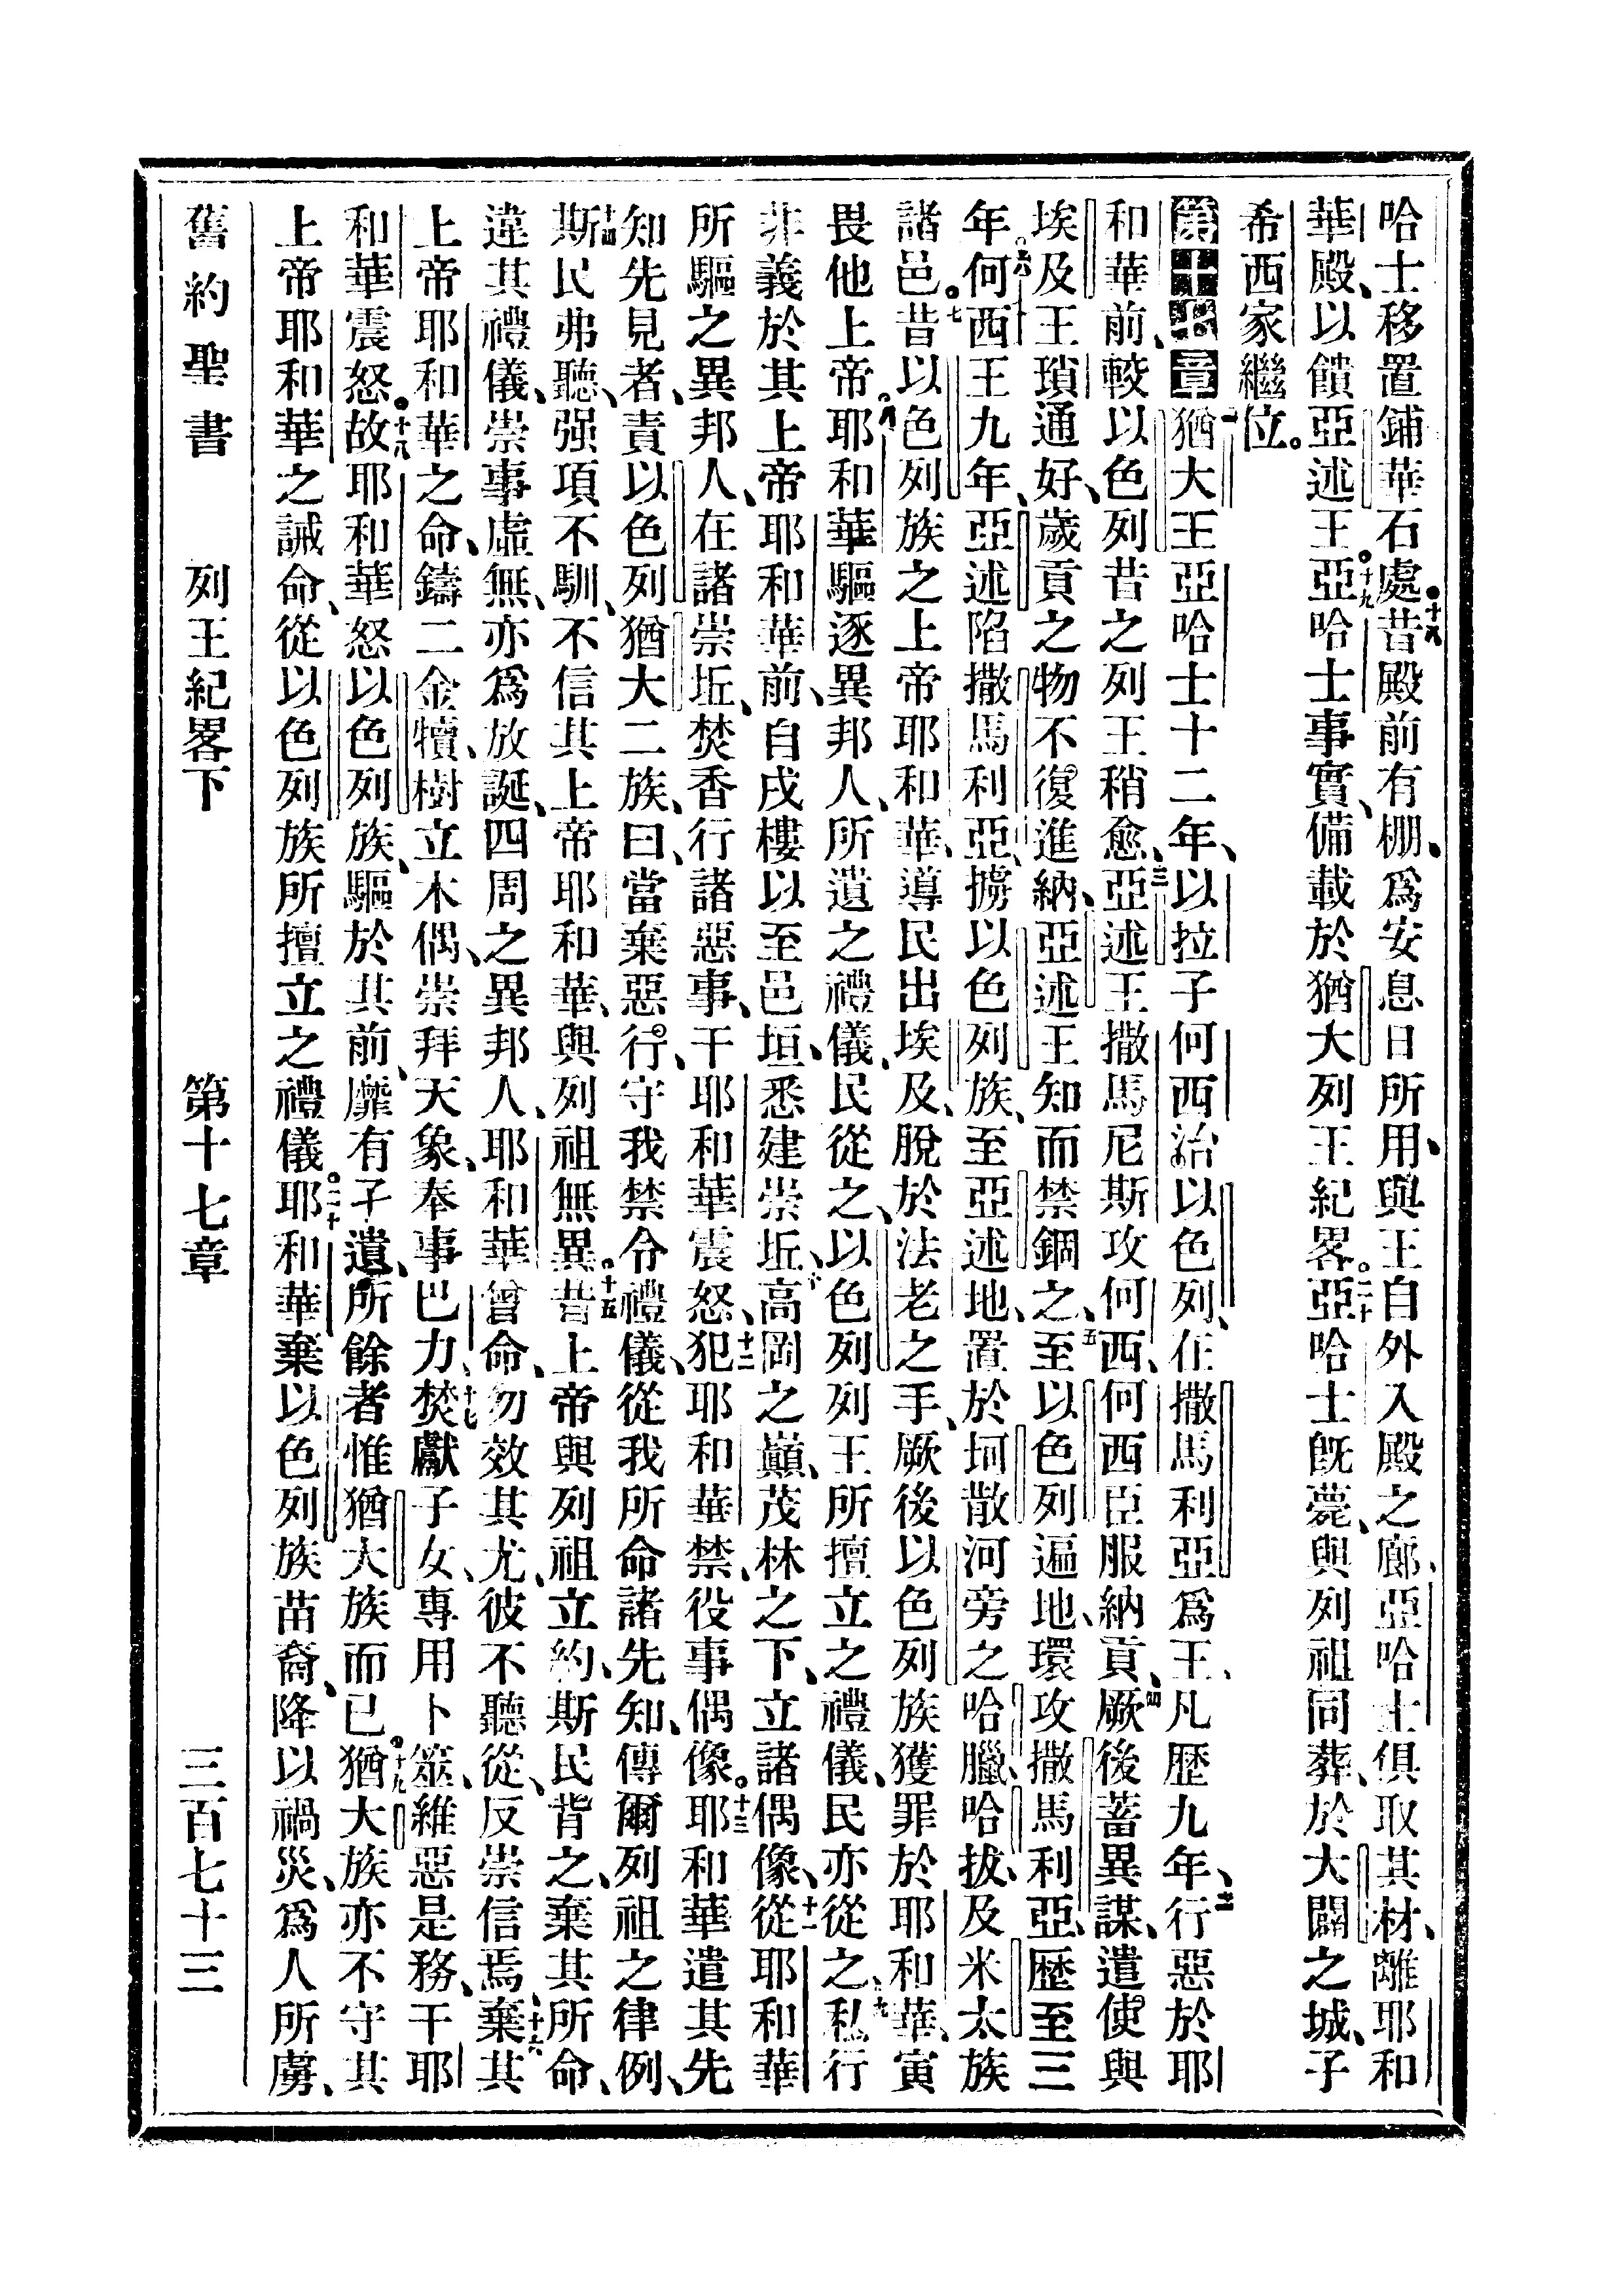 哈士移置鋪華石處、十八昔殿前有棚、爲安息日所用、與王自外入殿之廊、亞哈士俱取其材、離耶和
華殿、以饋亞述王。十九亞哈士事實、備載於猶大列王紀畧。二十亞哈士旣薨、與列祖同葬、於大闢之城、子
希西家繼位。
第十七章一猶大王亞哈士十二年、以拉子何西治以色列、在撒馬利亞爲王、凡歷九年、二行惡於耶
和華前、較以色列昔之列王稍愈、三亞述王撒馬尼斯攻何西、何西臣服納貢、四厥後蓄異謀、遣使與
埃及王瑣通好、歲貢之物不復進納、亞述王知而禁錮之、五至以色列遍地、環攻撒馬利亞、歷至三
年。六何西王九年、亞述陷撒馬利亞、擄以色列族、至亞述地、置於坷散河旁之哈臘、哈拔、及米太族
諸邑。七昔以色列族之上帝耶和華、導民出埃及、脫於法老之手、厥後以色列族獲罪於耶和華、寅
畏他上帝。八耶和華驅逐異邦人、所遺之禮儀、民從之、以色列列王所擅立之禮儀、民亦從之、九私行
非義於其上帝耶和華前、自戍樓以至邑垣、悉建崇坵、十高岡之巔、茂林之下、立諸偶像、十一從耶和華
所驅之異邦人、在諸崇坵、焚香行諸惡事、干耶和華震怒、十二犯耶和華禁、役事偶像。十三耶和華遣其先
知先見者、責以色列猶大二族、曰、當棄惡行、守我禁令禮儀、從我所命諸先知、傳爾列祖之律例、
十四斯民弗聽、强項不馴、不信其上帝耶和華、與列祖無異。十五昔上帝與列祖立約、斯民背之、棄其所命、
違其禮儀、崇事虛無、亦爲放誕、四周之異邦人、耶和華曾命、勿效其尤、彼不聽從、反崇信焉、十六棄其
上帝耶和華之命、鑄二金犢、樹立木偶、崇拜天象、奉事巴力、十七焚獻子女、專用卜筮、維惡是務、干耶
和華震怒。十八故耶和華怒以色列族、驅於其前、靡有孑遺、所餘者惟猶大族而已。十九猶大族亦不守其
上帝耶和華之誡命、從以色列族所擅立之禮儀。二十耶和華棄以色列族苗裔、降以禍災、爲人所虜、
舊約聖書 列王紀畧下 第十七章 三百七十三